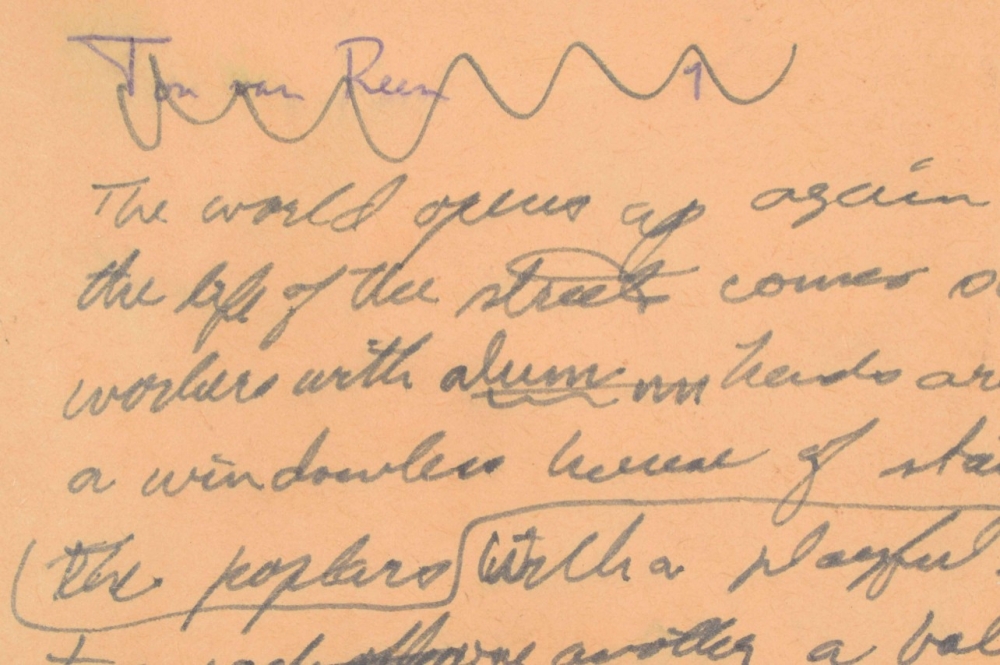 Ton van Reen 1
The world opens up again
the life of the streets comes
workers with alum heads
a windowless house of
the poplars with a playful
another a